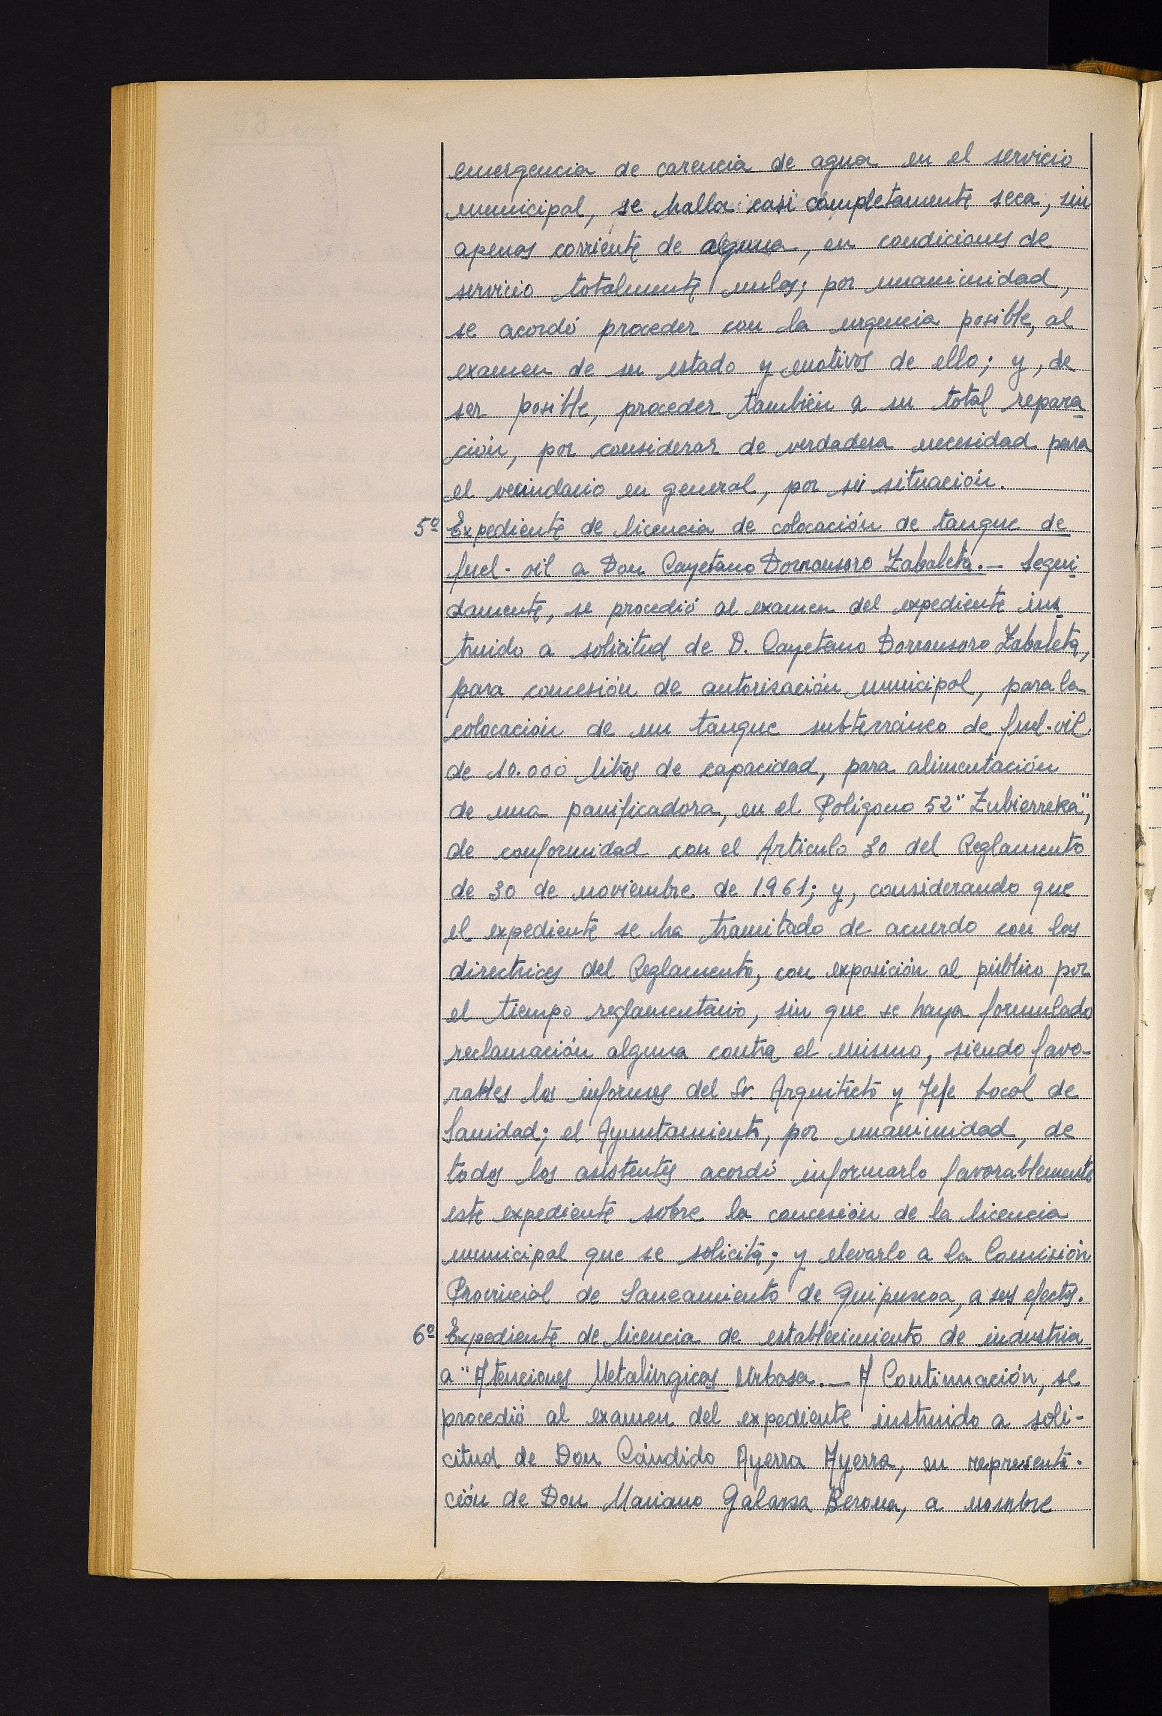 emergencia de carencia de agua en el servicio
municipal, se halla casi completamente seca, sin
apenas corriente de alguna, en condiciones de
servicio totalmente nulos; por unanimidad,
se acordó proceder con la urgencia posible, al
examen de su estado y motivos de ello; y, de
ser posible, proceder también a su total repara
ción, por considerar de verdadera necesidad para
el vecindario en general, por su situación.
5º Expediente de licencia de colocación de tanque de
fuel-oil a Don Cayetano Dorronsoro Zabaleta.— Segui
damente, se procedió al examen del expediente ins
truido a solicitud de D. Cayetano Dorronsoro Zabaleta,
para concesión de autorisación municipal, para la
colocación de un tanque subterráneo de fuel-oil
de 10.000 litros de capacidad, para alimentación
de una panificadora, en el Polígono 52 "Zubierreka",
de conformidad con el Artículo 30 del Reglamento
de 30 de noviembre de 1961; y, considerando que
el expediente se ha tramitado de acuerdo con las
directrices del Reglamento, con exposición al público por
el tiempo reglamentario, sin que se haya formulado
reclamación alguna contra el mismo, siendo favo-
rables los informes del Sr Arquitecto y Jefe Local de
Sanidad; el Ayuntamiento, por unanimidad, de
todos los asistentes acordó informarlo favorablemente
este expediente sobre la concesión de la licencia
municipal que se solicita; y elevarlo a la Comisión
Provincial de Saneamiento de Guipuscoa, a sus efectos.
6º Expediente de licencia de establecimiento de industria
a "Atenciones Metalúrgicas Urbasa.— A Continuación, se
procedió al examen del expediente instruido a soli-
citud de Don Cándido Ayerra Ayerra, en representa-
ción de Don Mariano Galarza, a nombre